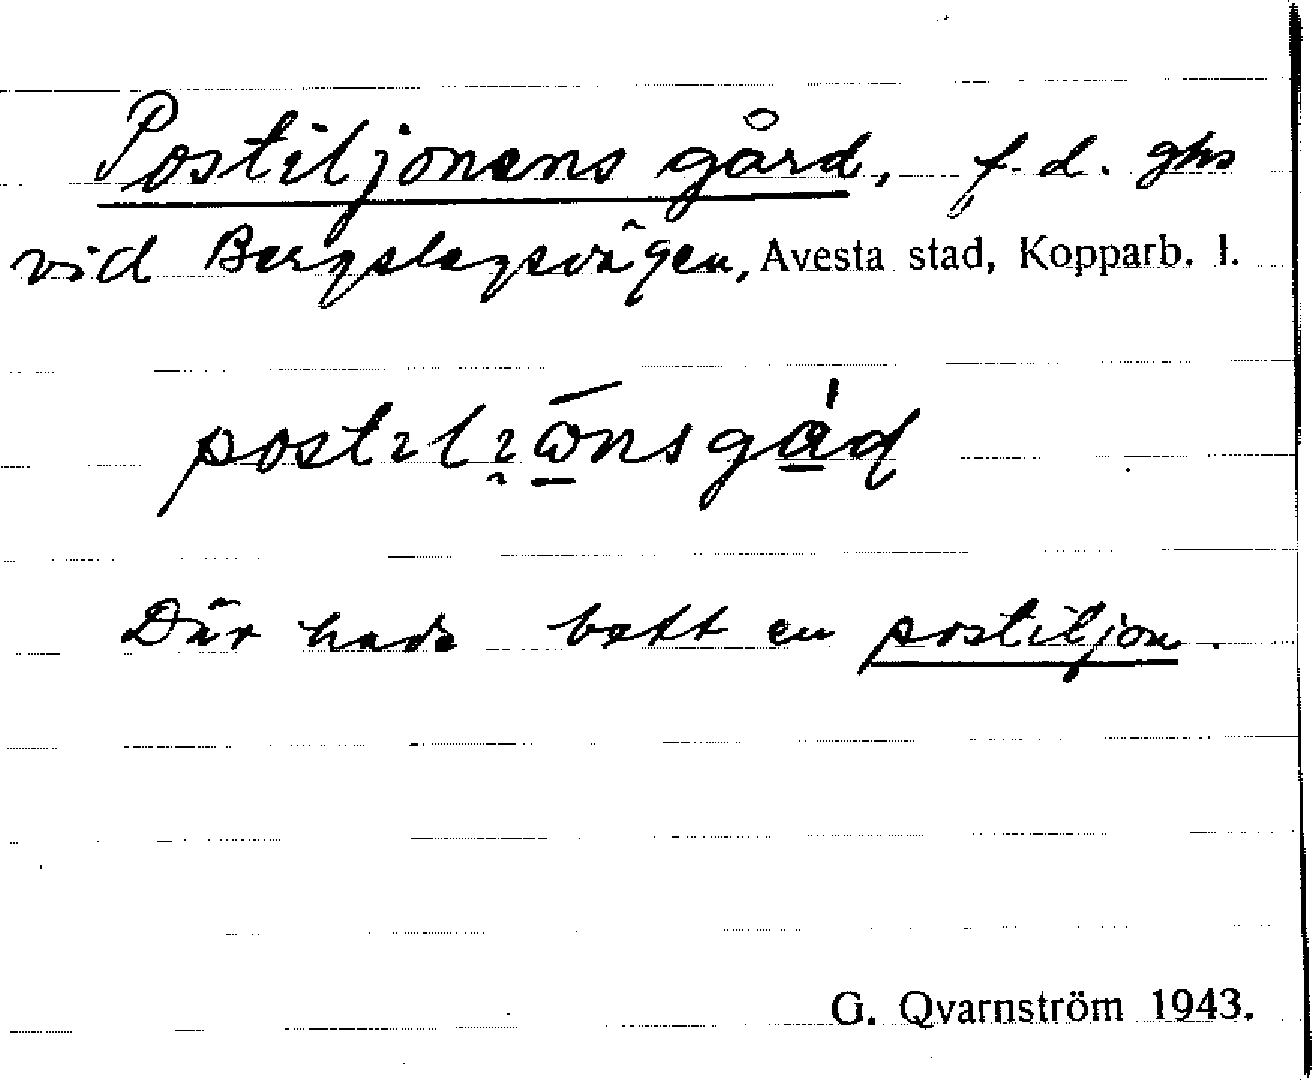 Postiljonens gård, f.d. ghs
vid Bergslagsvägen, Avesta stad, Kopparb. l.
Där hade bott en postiljon.
G. Qvarnström 1943.